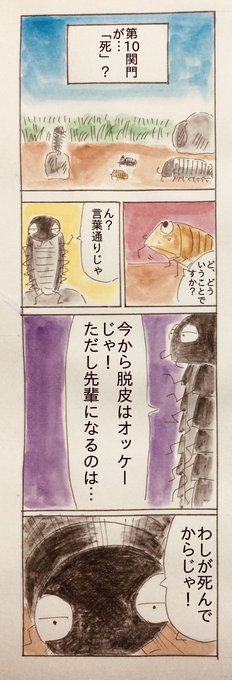 第10関門
が…
「死」？
ど、どう
いうことで
すか？
ん？
言葉通りじゃ
今から脱皮はオッケー
じゃ！
ただし先輩になるのは…
わしが死んで
からじゃ！